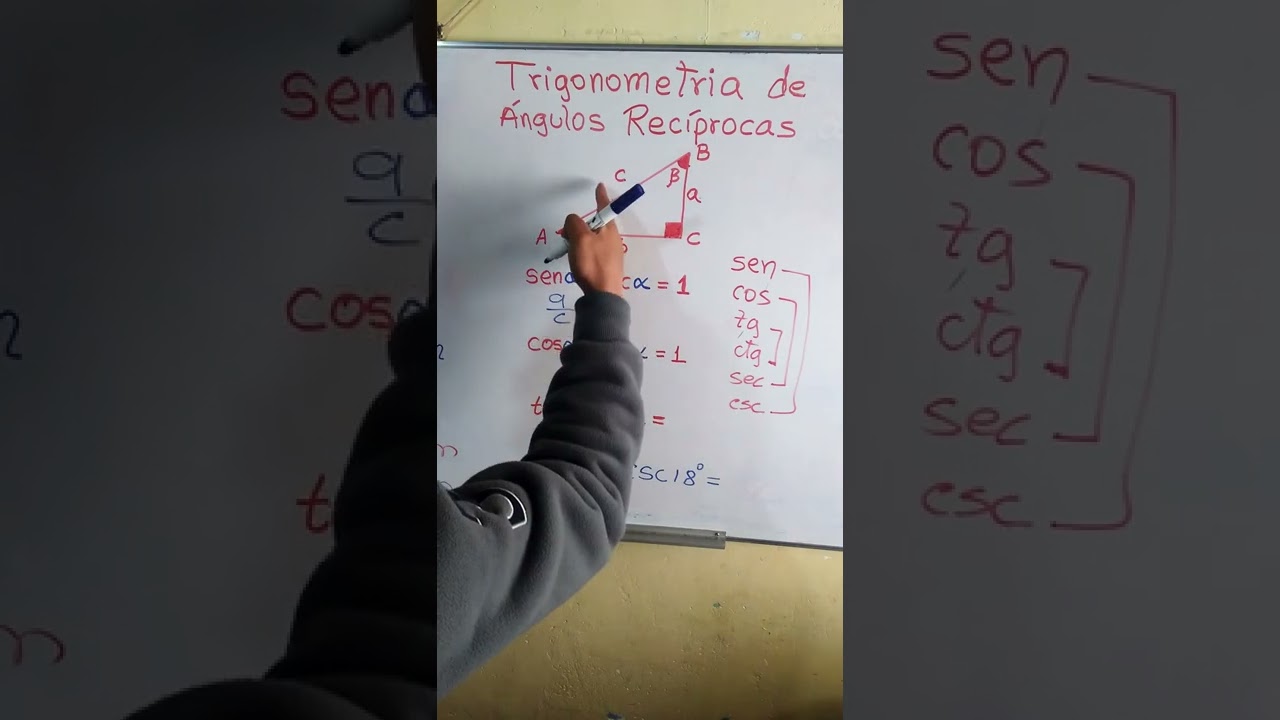 Trigonometria de
Ángulos Recíprocas
B
c
β
a
A
C
senα cα = 1
a
c
cos = 1
t =
csc18° =
sen
cos
tg
ctg
sec
csc